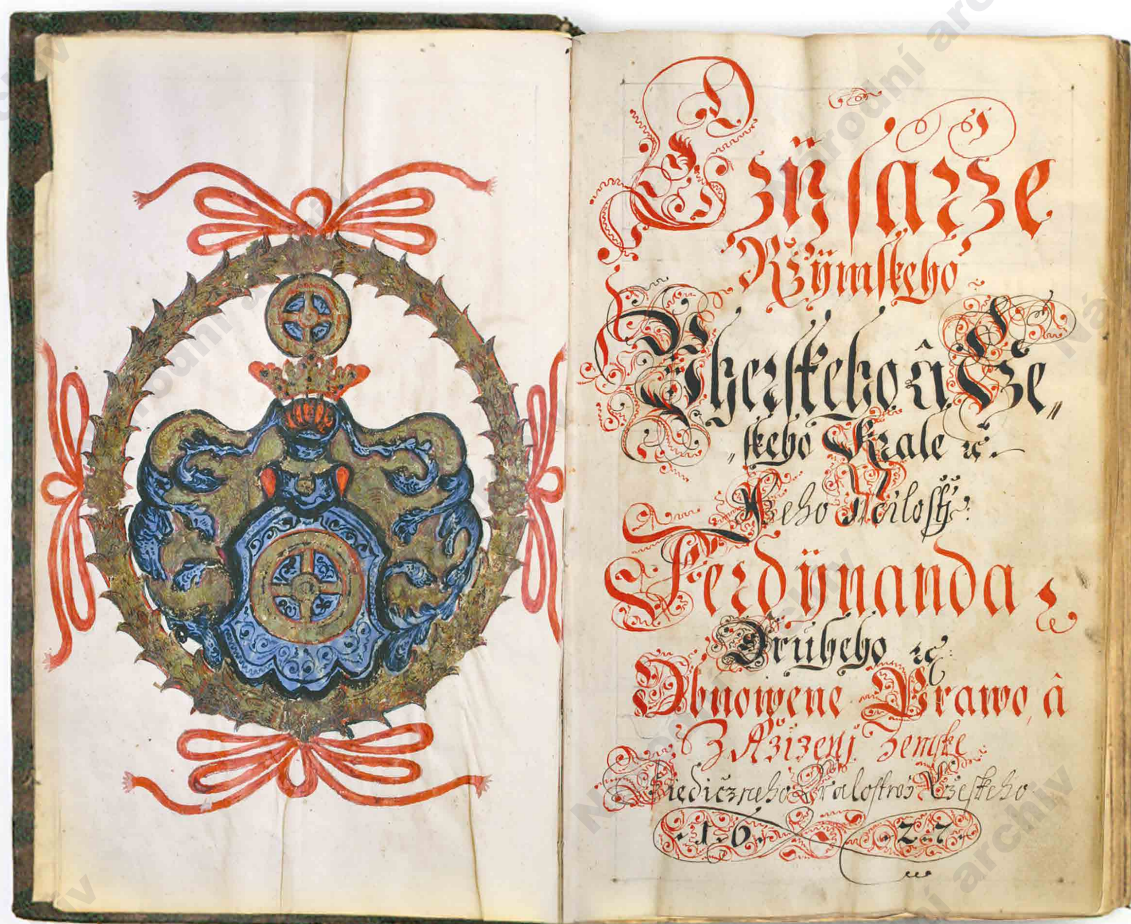 Czÿsarze
Rzÿmskeho
Vherskeho â Cze„
„skeho Krale ꝛc.
Geho Milosti
Ferdÿnanda
Druheho ꝛc
Obnowene Prawo, â
Zržizenj Zemske
Diedičzneho Kralostwj Cžeskeho
1627
Národní archiv